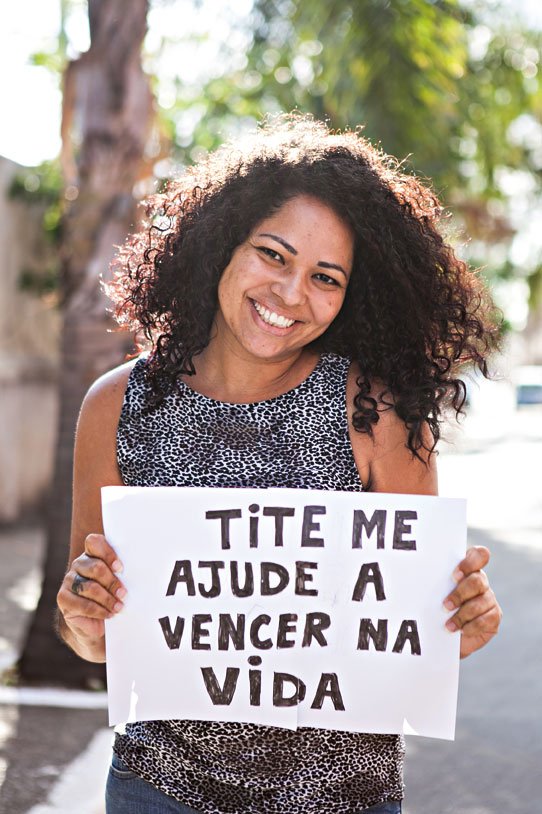 TiTE ME
AJUDE A
VENCER NA
ViDA